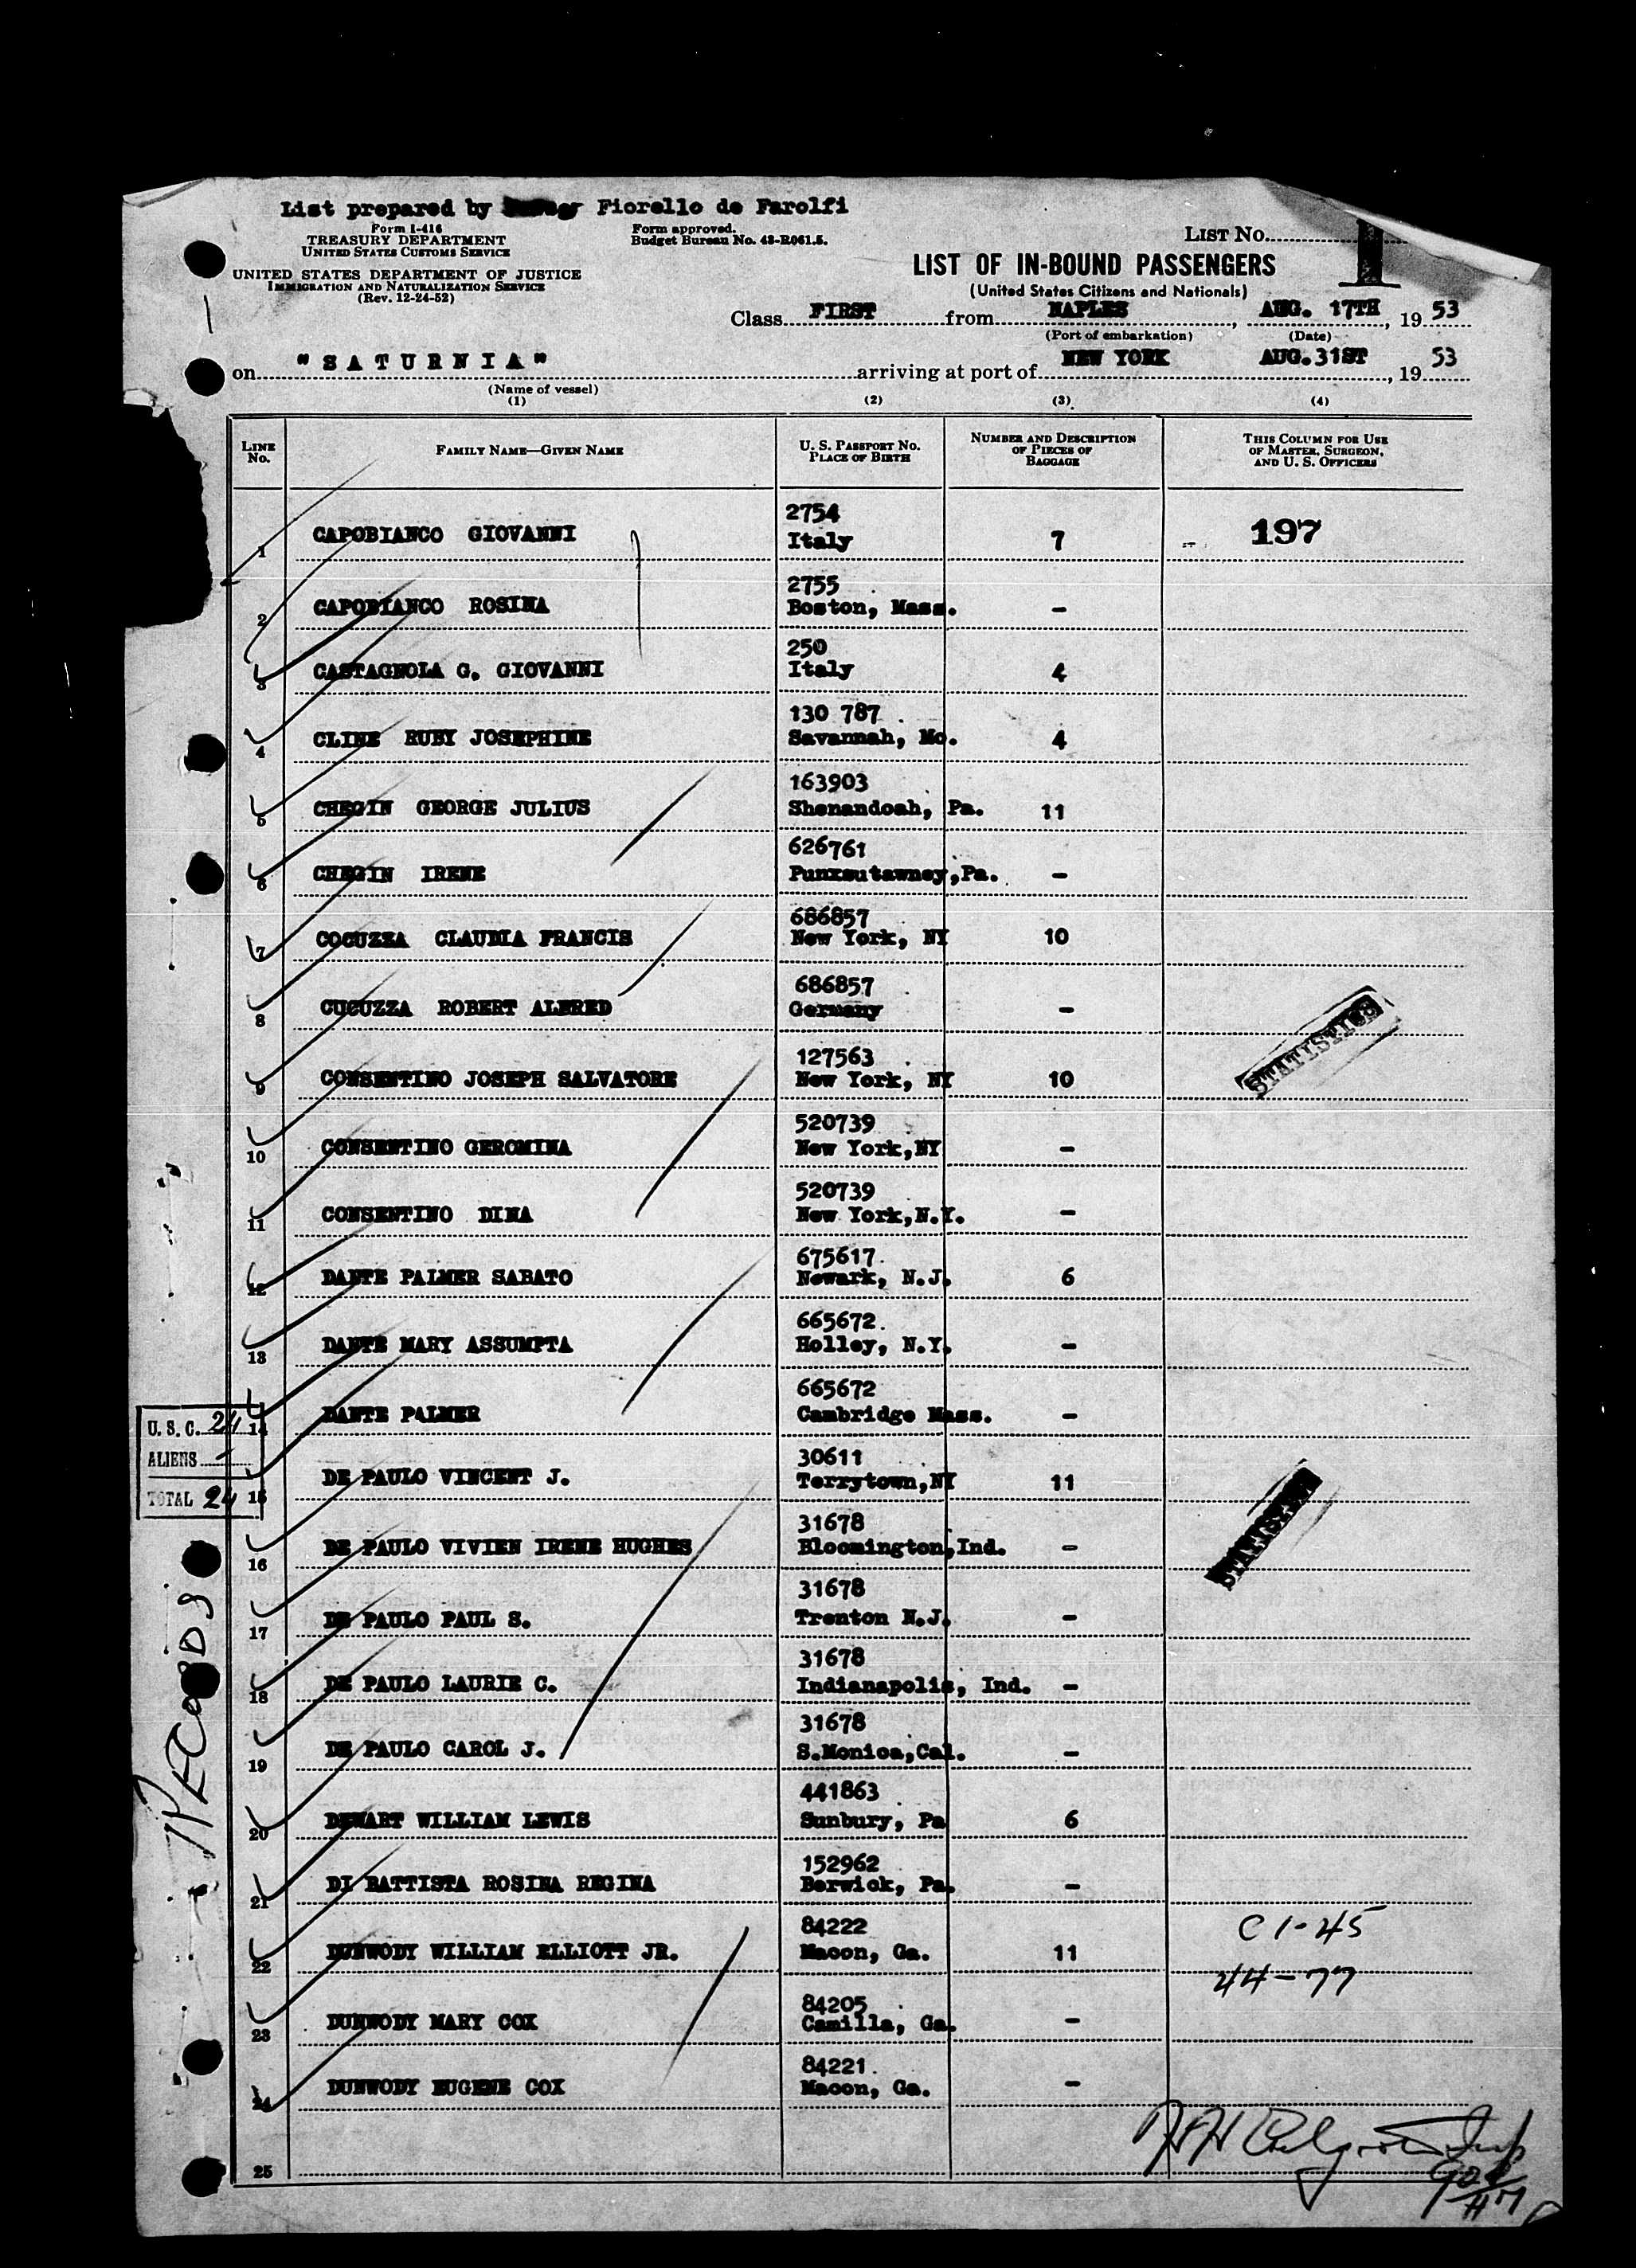 List prepared by Fiorello de Farolfi
Form I-416
TREASURY DEPARTMENT
UNITED STATES CUSTOMS SERVICE
Form approved.
Budget Bureau No. 43-R061.5.
UNITED STATES DEPARTMENT OF JUSTICE
IMMIGRATION AND NATURALIZATION SERVICE
(Rev. 12-24-52)
LIST No. 1
LIST OF IN-BOUND PASSENGERS
(United States Citizens and Nationals)
Class FIRST from NAPLES, AUG. 17TH, 19 53
(Port of embarkation) (Date)
on "SATURNIA" arriving at port of NEW YORK AUG.31ST, 19 53
(Name of vessel)
(1) (2) (3) (4)
LINE No. FAMILY NAME—GIVEN NAME U. S. PASSPORT No. PLACE OF BIRTH NUMBER AND DESCRIPTION OF PIECES OF BAGGAGE THIS COLUMN FOR USE OF MASTER, SURGEON, AND U. S. OFFICERS
2754
1 CAPOBIANCO GIOVANNI Italy 7 197
2755
2 CAPOBIANCO ROSINA Boston, Mass. -
250
3 CASTAGNOLA G. GIOVANNI Italy 4
130 787
4 CLINE RUBY JOSEPHINE Savannah, Mo. 4
163903
5 CHEGIN GEORGE JULIUS Shenandoah, Pa. 11
626761
6 CHEGIN IRENE Punxsutawney,Pa. -
686857
7 COCUZZA CLAUDIA FRANCIS New York, NY 10
686857
8 CUCUZZA ROBERT ALFRED Germany -
STATISTICS
127563
9 CONSENTINO JOSEPH SALVATORE New York, NY 10
520739
10 CONSENTINO GEROMINA New York,NY -
520739
11 CONSENTINO DINA New York,N.Y. -
675617
12 DANTE PALMER SABATO Newark, N.J. 6
665672
13 DANTE MARY ASSUMPTA Holley, N.Y. -
665672
14 DANTE PALMER Cambridge Mass. -
U. S. C. 24
ALIENS -
TOTAL 24
30611
15 DE PAULO VINCENT J. Terrytown,NY 11
STATISTICS
31678
16 DE PAULO VIVIEN IRENE HUGHES Bloomington,Ind. -
31678
17 DE PAULO PAUL S. Trenton N.J. -
RECORDS
31678
18 DE PAULO LAURIE C. Indianapolis, Ind. -
31678
19 DE PAULO CAROL J. S.Monica,Cal. -
441863
20 DEWART WILLIAM LEWIS Sunbury, Pa 6
152962
21 DI BATTISTA ROSINA REGINA Berwick, Pa. -
84222
22 DUNWODY WILLIAM ELLIOTT JR. Macon, Ga. 11
C 1-45
44-77
84205
23 DUNWODY MARY COX Camilla, Ga. -
84221
24 DUNWODY EUGENE COX Macon, Ga. -
25